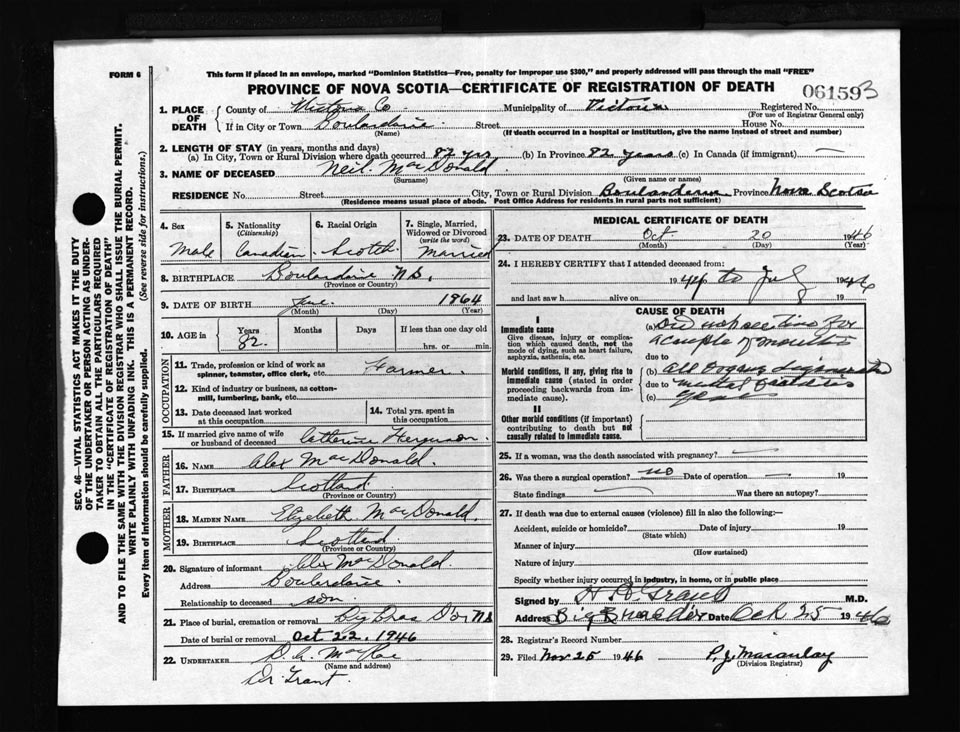 FORM 6
This form if placed in an envelope, marked "Dominion Statistics—Free, penalty for improper use $300," and properly addressed will pass through the mail "FREE"
PROVINCE OF NOVA SCOTIA—CERTIFICATE OF REGISTRATION OF DEATH
061593
1. PLACE OF DEATH
County of Victoria Co Municipality of Victoria Registered No.
(For use of Registrar General only)
If in City or Town Boulardarie Street House No.
(Name) (If death occurred in a hospital or institution, give the name instead of street and number)
2. LENGTH OF STAY (in years, months and days)
(a) In City, Town or Rural Division where death occurred 82 yrs (b) In Province 82 years (c) In Canada (if immigrant) —
3. NAME OF DECEASED Neil MacDonald
(Surname) (Given name or names)
RESIDENCE No. Street City, Town or Rural Division Boulardarie Province Nova Scotia
(Residence means usual place of abode. Post Office Address for residents in rural parts not sufficient)
SEC. 46—VITAL STATISTICS ACT MAKES IT THE DUTY
OF THE UNDERTAKER OR PERSON ACTING AS UNDER-
TAKER TO OBTAIN ALL THE PARTICULARS REQUIRED
IN THE "CERTIFICATE OF REGISTRATION OF DEATH"
AND TO FILE THE SAME WITH THE DIVISION REGISTRAR WHO SHALL ISSUE THE BURIAL PERMIT.
WRITE PLAINLY WITH UNFADING INK. THIS IS A PERMANENT RECORD.
Every item of information should be carefully supplied. (See reverse side for instructions.)
4. Sex
Male
5. Nationality
(Citizenship)
Canadian
6. Racial Origin
Scotch
7. Single, Married, Widowed or Divorced
(write the word)
Married
8. BIRTHPLACE Boulardarie N.S.
(Province or Country)
9. DATE OF BIRTH June 1864
(Month) (Day) (Year)
10. AGE in Years Months Days If less than one day old
82 hrs. or min.
OCCUPATION
11. Trade, profession or kind of work as
spinner, teamster, office clerk, etc. Farmer
12. Kind of industry or business, as cotton-
mill, lumbering, bank, etc.
13. Date deceased last worked
at this occupation
14. Total yrs. spent in
this occupation
15. If married give name of wife
or husband of deceased Catherine Ferguson
FATHER
16. NAME Alex MacDonald
17. BIRTHPLACE Scotland
(Province or Country)
MOTHER
18. MAIDEN NAME Elizabeth MacDonald
19. BIRTHPLACE Scotland
(Province or Country)
20. Signature of informant Alex MacDonald
Address Boulardarie
Relationship to deceased son
21. Place of burial, cremation or removal Big Bras D'or NS
Date of burial or removal Oct 22, 1946
22. UNDERTAKER D. A. MacRae
(Name and address)
Dr Grant.
MEDICAL CERTIFICATE OF DEATH
23. DATE OF DEATH Oct 20 1946
(Month) (Day) (Year)
24. I HEREBY CERTIFY that I attended deceased from:
1944 to July 1946
and last saw h alive on 19
CAUSE OF DEATH
I
Immediate cause
Give disease, injury or complica-
tion which caused death, not the
mode of dying, such as heart failure,
asphyxia, asthenia, etc.
Morbid conditions, if any, giving rise to
immediate cause (stated in order
proceeding backwards from im-
mediate cause).
II
Other morbid conditions (if important)
contributing to death but not
causally related to immediate cause.
(a) Did not see him for
a couple of months
due to
(b) all organs
due to
(c) years
25. If a woman, was the death associated with pregnancy? —
26. Was there a surgical operation? no Date of operation — 19
State findings — Was there an autopsy?
27. If death was due to external causes (violence) fill in also the following:—
Accident, suicide or homicide? Date of injury 19
(State which)
Manner of injury
(How sustained)
Nature of injury
Specify whether injury occurred in industry, in home, or in public place
Signed by H A Grant M.D.
Address Big Bras d'or Date Oct 25 1946
28. Registrar's Record Number
29. Filed Nov 25 1946 P. J. Macaulay
(Division Registrar)